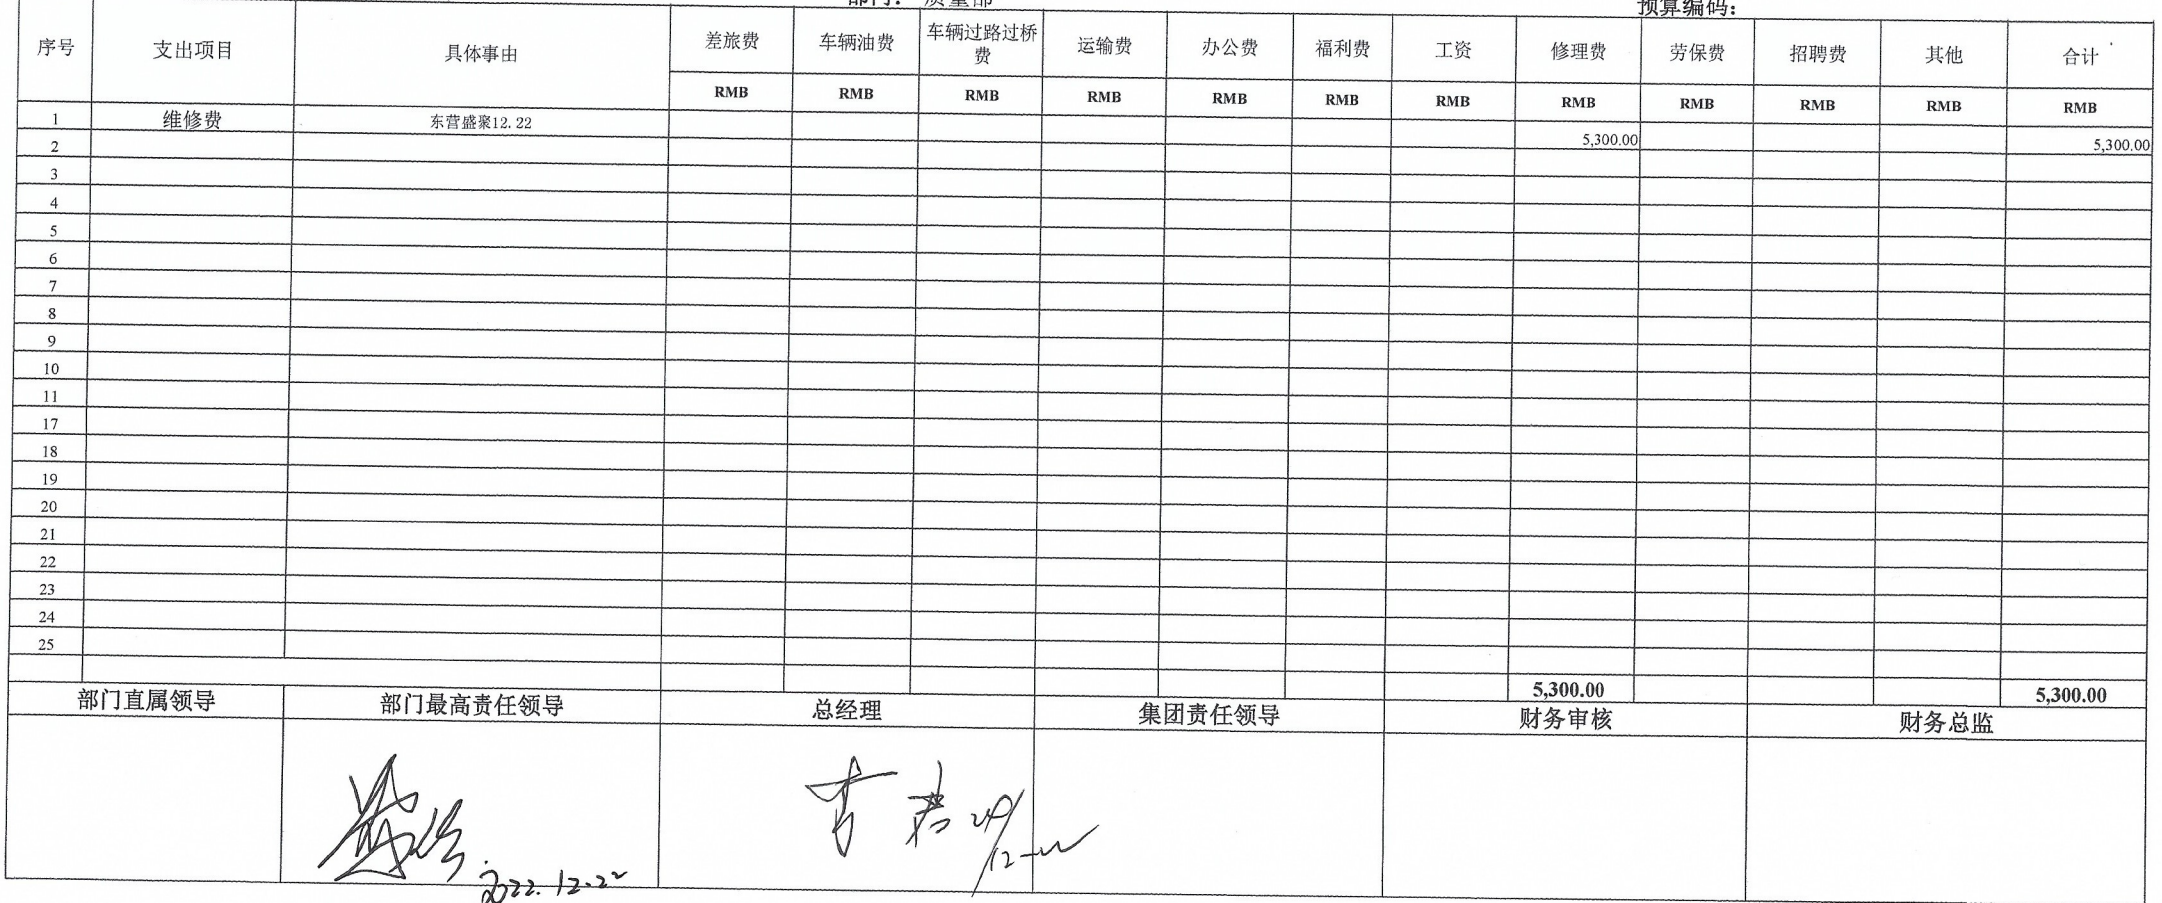 部门: 质量部 预算编码:
序号 支出项目 具体事由 差旅费 车辆油费 车辆过路过桥费 运输费 办公费 福利费 工资 修理费 劳保费 招聘费 其他 合计
RMB RMB RMB RMB RMB RMB RMB RMB RMB RMB RMB RMB
1 维修费 东营盛聚12.22 5,300.00 5,300.00
2
3
4
5
6
7
8
9
10
11
17
18
19
20
21
22
23
24
25
5,300.00 5,300.00
部门直属领导 部门最高责任领导 总经理 集团责任领导 财务审核 财务总监
2022.12.22